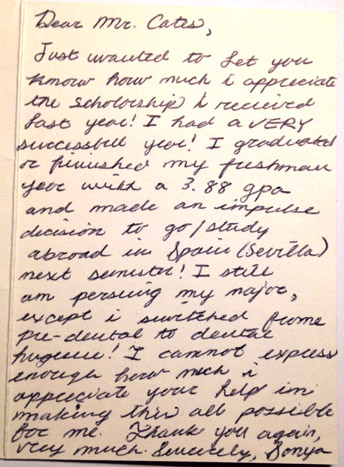 Dear Mr. Cates,
Just wanted to let you
know how much i appreciate
the scholorship i recieved
last year! I had a VERY
successful year! I graduated
or finished my freshman
year with a 3.88 gpa
and made an impulse
decision to go/study
abroad in Spain (Sevilla)
next semester! I still
am persuing my major,
except i switched frome
pre-dental to dental
hygiene! I cannot express
enough how much i
appreciate your help in
making this all possible
for me. Thank you again,
very much. Sincerely, Sonya